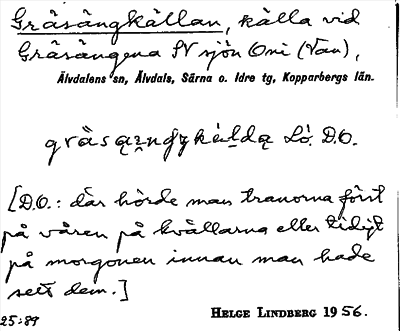 Gräsängkällan, källa vid
Gräsängena SV sjön Oni (Van),
Älvdalens sn, Älvdals, Särna o. Idre tg, Kopparbergs län.
Lö. D.O.
[D.O.: där hörde man tranorna först
på våren på kvällarna eller tidigt
på morgonen innan man hade
sett dem.]
25:89
HELGE LINDBERG 1956.